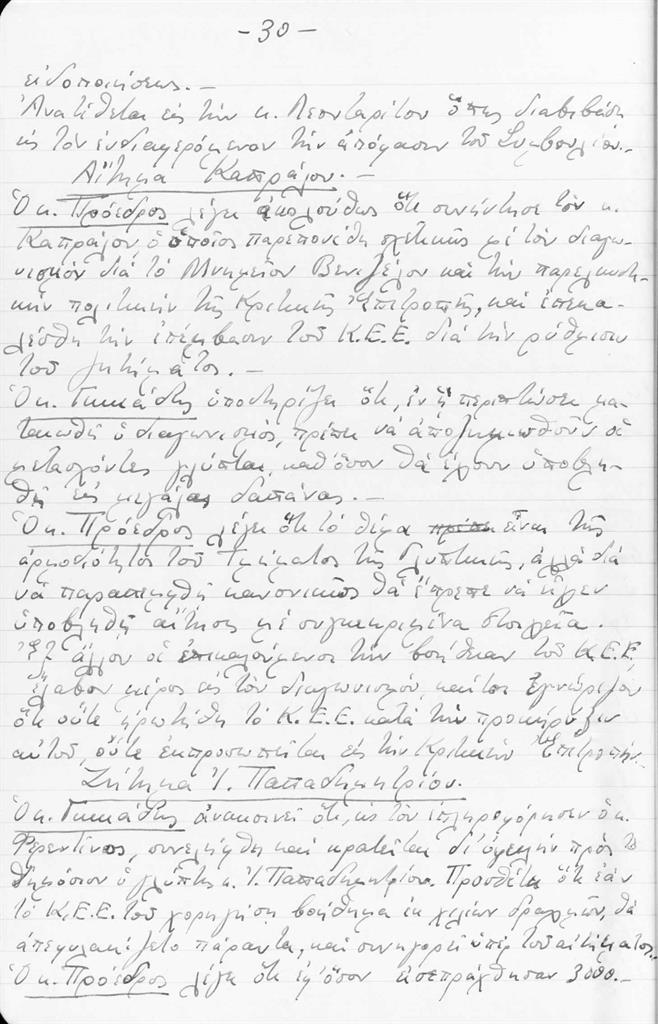 -30-
εἰδοποιήσεως.-
Ἀνατίθεται εἰς τὴν κ. Λεονταρίτου ὅπως διαβιβάσῃ
εἰς τὸν ἐνδιαφερόμενον τὴν ἀπόφασιν τοῦ Συμβουλίου.-
Αἴτημα Καπράλου.-
Ὁ κ. Πρόεδρος λέγει ἀκολούθως ὅτι συνήντησε τὸν κ.
Καπράλον, ὁ ὁποῖος παρεπονέθη σχετικῶς μὲ τὸν διαγω-
νισμὸν διὰ τὸ Μνημεῖον Βενιζέλου καὶ τὴν παρελκυστι-
κὴν πολιτικὴν τῆς Κριτικῆς Ἐπιτροπῆς, καὶ ἐπεκα-
λέσθη τὴν ἐπέμβασιν τοῦ Κ.Ε.Ε. διὰ τὴν ρύθμισιν
τοῦ ζητήματος.-
Ὁ κ. ὑποστηρίζει ὅτι, ἐν ᾗ περιπτώσει μα-
ταιωθῇ ὁ διαγωνισμός, πρέπει νὰ ἀποζημιωθοῦν οἱ
μετασχόντες γλύπται, καθ' ὅσον θὰ ἔχουν ὑποβλη-
θῆ εἰς μεγάλας δαπάνας.-
Ὁ κ. Πρόεδρος λέγει ὅτι τὸ θέμα πρέπει εἶναι τῆς
ἁρμοδιότητος τοῦ Τμήματος τῆς Γλυπτικῆς, ἀλλὰ διὰ
νὰ παραπεμφθῇ κανονικῶς θὰ ἔπρεπε νὰ εἶχεν
ὑποβληθῆ αἴτησις μὲ συγκεκριμένα στοιχεῖα.
Ἐξ ἄλλου οἱ ἐπικαλούμενοι τὴν βοήθειαν τοῦ Κ.Ε.Ε.
ἔλαβον μέρος εἰς τὸν διαγωνισμόν, καίτοι ἐγνώριζον
ὅτι οὔτε ἠρωτήθη τὸ Κ.Ε.Ε. κατὰ τὴν προκήρυξιν
αὐτοῦ, οὔτε ἐκπροσωπεῖται εἰς τὴν Κριτικὴν Ἐπιτροπήν.-
Ζήτημα Ἰ. Παπαδημητρίου.
Ὁ κ. ἀνακοινεῖ ὅτι, ὡς τὸν ἐπληροφόρησεν ὁ κ.
Φερεντῖνος, συνελήφθη καὶ κρατεῖται δι' ὀφειλὴν πρὸς τὸ
δημόσιον ὁ γλύπτης κ. Ἰ. Παπαδημητρίου. Προσθέτει ὅτι ἐὰν
τὸ Κ.Ε.Ε. τοῦ χορηγήσῃ βοήθημα ἐκ χιλίων δραχμῶν, θὰ
ἀπεφυλακίζετο πάραυτα, καὶ συνηγορεῖ ὑπὲρ τοῦ αἰτήματος.-
Ὁ κ. Πρόεδρος λέγει ὅτι ἐφ' ὅσον εἰσεπράχθησαν 3000.-